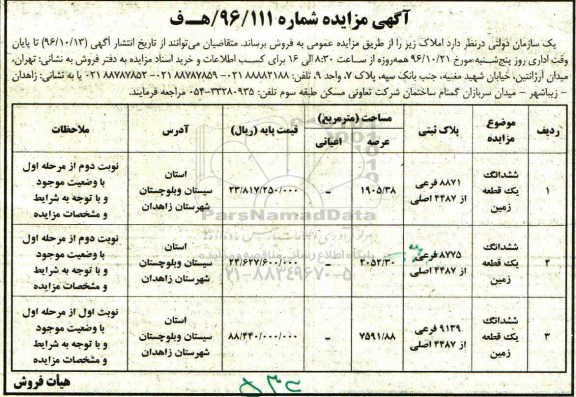 آگهی مزایده شماره ۹۶/۱۱۱/هـ‌ف
یک سازمان دولتی درنظر دارد املاک زیر را از طریق مزایده عمومی به فروش برساند. متقاضیان می‌توانند از تاریخ انتشار آگهی (۹۶/۱۰/۱۳) تا پایان
وقت اداری روز پنج‌شنبه مورخ ۹۶/۱۰/۲۱ همه‌روزه از ساعت ۸:۳۰ الی ۱۶ برای کسب اطلاعات و خرید اسناد مزایده به دفتر فروش به نشانی: تهران،
میدان آرژانتین، خیابان شهید مغنیه، جنب بانک سپه، پلاک ۷، واحد ۹، تلفن: ۸۸۸۸۲۱۸۸ ۰۲۱- ۸۸۷۸۷۸۵۹ ۰۲۱- ۸۸۷۸۷۸۵۳ ۰۲۱ یا به نشانی: زاهدان
- زیباشهر - میدان سربازان گمنام ساختمان شرکت تعاونی مسکن طبقه سوم تلفن: ۳۳۲۸۰۹۳۵-۰۵۴ مراجعه فرمایند.
ردیف موضوع مزایده پلاک ثبتی مساحت (مترمربع) عرصه اعیانی قیمت پایه (ریال) آدرس ملاحظات
۱ ششدانگ یک قطعه زمین ۸۸۷۱ فرعی از ۴۴۸۷ اصلی ۱۹۰۵/۳۸ – ۲۳/۸۱۷/۲۵۰/۰۰۰ استان سیستان وبلوچستان شهرستان زاهدان نوبت دوم از مرحله اول با وضعیت موجود و با توجه به شرایط و مشخصات مزایده
۲ ششدانگ یک قطعه زمین ۸۷۷۵ فرعی از ۴۴۸۷ اصلی ۲۰۵۲/۳۰ – ۲۴/۶۲۷/۶۰۰/۰۰۰ استان سیستان وبلوچستان شهرستان زاهدان نوبت دوم از مرحله اول با وضعیت موجود و با توجه به شرایط و مشخصات مزایده
۳ ششدانگ یک قطعه زمین ۹۱۳۹ فرعی از ۴۴۸۷ اصلی ۷۵۹۱/۸۸ – ۸۸/۴۴۰/۰۰۰/۰۰۰ استان سیستان وبلوچستان شهرستان زاهدان نوبت اول از مرحله اول با وضعیت موجود و با توجه به شرایط و مشخصات مزایده
ParsNamadData
۰۲۱-۸۸۳۴۹۶۷۰-۵
هیأت فروش